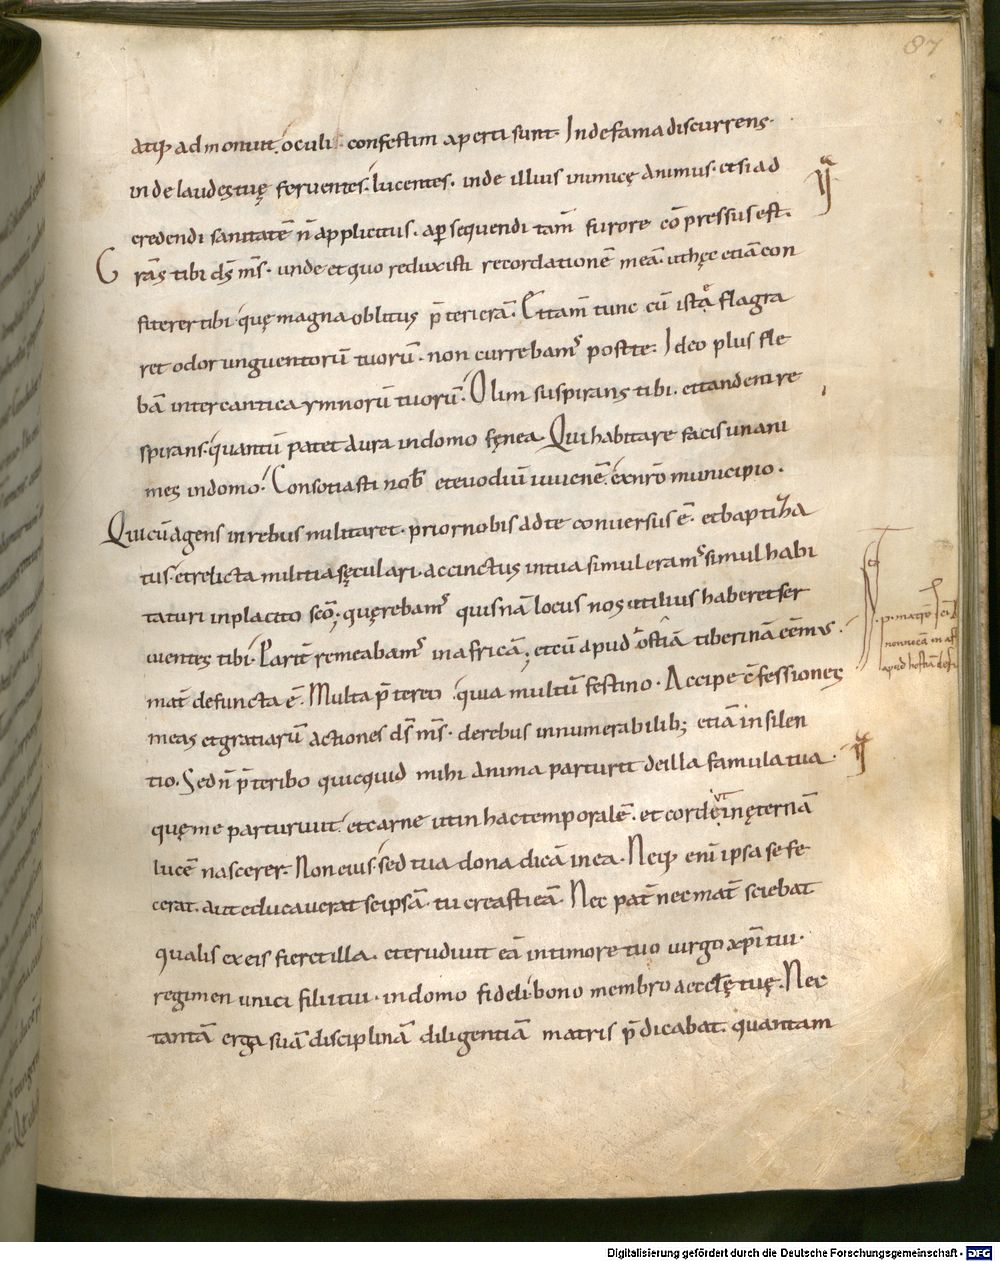 87
atq; admouit. oculi confestim aperti sunt. Inde fama discurrens.
inde laudes tuę feruentes. lucentes. inde illius inimicę animus. etsi ad
credendi sanitatē n̄ applicitus. a ꝑsequendi tam̄ furore cōpressus est.
Grās tibi ds̄ ms̄. unde et quo reduxisti recordationē meā. ut hęc etiā con
fiterer tibi quę magna oblitus p̄terierā. Et tam̄ tunc cū ista flagra
ret odor unguentorū tuorū. non currebam᾽ post te. Ideo plus fle
bā inter cantica ymnorū tuorū. Olim suspirans tibi. et tandem re
spirans. quantū patet aura in domo fęnea. Qui habitare facis unani
mes in domo. Consotiasti nob̄ et euodiū iuuenē. ex nr̄o municipio.
Qui cū agens in rebus militaret. prior nobis ad te conuersus ē. et baptiza
tus. et relicta militia sęculari. accinctus in tua simul eram᾽ simul habi
taturi in placito sc̄o; quęrebam᾽ quisnā locus nos utilius haberet ser
uientes tibi. Parit̄ remeabam᾽ in africā; et cū apud ostiā tiberinā eēmus.
mat̄ defuncta ē. Multa p̄tereo quia multū festino. Accipe c̄fessiones
meas et gratiarū actiones ds̄ ms̄. de rebus innumerabilib; etiā in silen
tio. Sed n̄ p̄teribo quicquid mihi anima parturit de illa famula tua.
quę me parturiuit. et carne ut in hac temporalē. et corde ut in ęternā
lucē nascerer. Non eius. sed tua dona dicā in ea. Neq; eni᾽ ipsa se fe
cerat. aut educauerat seipsā. tu creasti eā. Nec pat̄ nec mat̄ sciebat
qualis ex eis fieret illa. et erudiuit eā in timore tuo uirga xp̄i tui.
regimen unici filii tui. in domo fideli bono membro aecclę tuę. Nec
tantā erga suā disciplinā diligentiā matris p̄dicabat. quantam
Digitalisierung gefördert durch die Deutsche Forschungsgemeinschaft - DFG